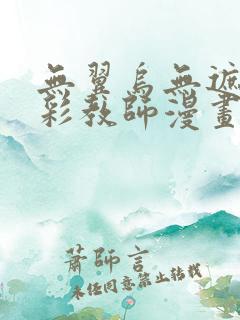 無翼烏無遮
彩教師漫畫
蕭師言
未經同意禁止轉載